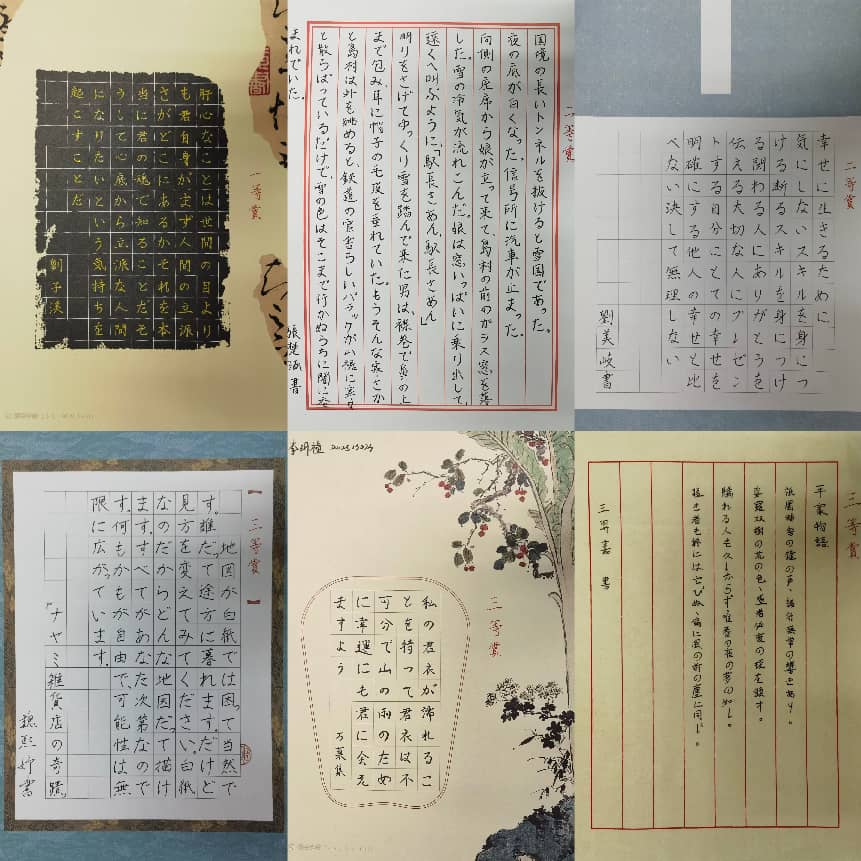 一等賞
肝心なことは世間の目より
も君自身がまず人間の立派
さがどこにあるかそれを本
当に君の魂で知ることだそ
うして心底から立派な人間
になりたいという気持ちを
起こすことだ
劉子渓
二等賞
国境の長いトンネルを抜けると雪国であった。
夜の底が白くなった。信号所に汽車が止まった。
向側の座席から娘が立って来て、島村の前のガラス窓を落
した。雪の冷気が流れこんだ。娘は窓いっぱいに乗り出して、
遠くへ叫ぶように、「駅長さあん、駅長さあん」
明りをさげてゆっくり雪を踏んで来た男は、襟巻で鼻の上
まで包み、耳に帽子の毛皮を垂れていた。もうそんな寒さか
と島村は外を眺めると、鉄道の官舎らしいバラックが山裾に寒々
と散らばっているだけで、雪の色はそこまで行かぬうちに闇に呑
まれていた。
書
二等賞
幸せに生きるために
気にしないスキルを身につ
ける断るスキルを身につけ
る関わる人にありがとうを
伝える大切な人にプレゼン
トする自分にとての幸せを
明確にする他人の幸せと比
べない決して無理しない
劉美岐書
【三等賞】
地図が白紙では困って当然で
す。誰だって途方に暮れます。だけど
見方を変えてみてください。白紙
なのだからどんな地図だって描け
ます。すべてがあなた次第なので
す。何もかもが自由で、可能性は無
限に広がっています。
『ナヤミ雑貨店の奇蹟』
魏熙婷書
三等賞
私の君衣が濡れるこ
とを待って君衣は不
可分で山の雨のため
に幸運にも君に会え
ますよう
万葉集
三等賞
平家物語
祇園精舎の鐘の声、諸行無常の響きあり。
娑羅双樹の花の色、盛者必衰の理を顕す。
驕れる人も久しからず唯春の夜の夢の如し。
猛き者も終には亡びぬ、偏に風の前の塵に同じ。
書